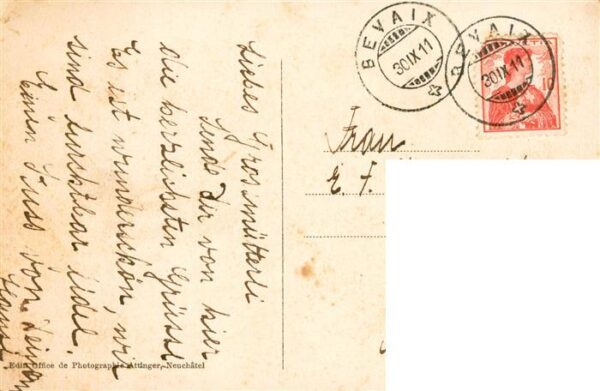 Liebes Grosmütterli
Sende Dir von hier
die herzlichsten Grüsse
Es ist wunderschön, wir
sind furchtbar fidel.
Einen Kuss von Deinem
BEVAIX
30 IX 11
BEVAIX
30 IX 11
10
Frau
E. F.
Edit. Office de Photographie Attinger, Neuchâtel